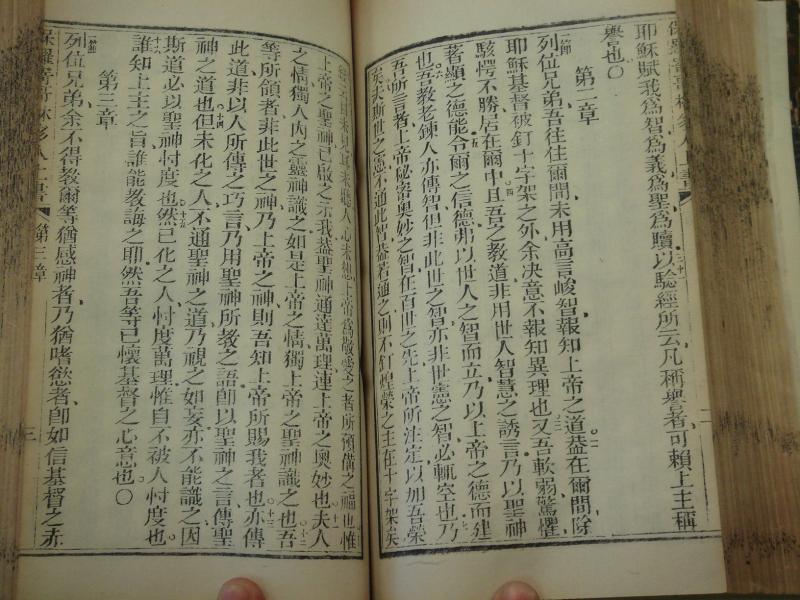 耶穌賦我爲智爲義爲聖爲贖以驗經所云凡稱譽者可賴上主稱
譽也〇
第二章
列位兄弟吾往住爾間未用高言峻智報知上帝之道蓋在爾間除
耶穌基督被釘十字架之外余決意不報知異理也又吾軟弱驚懼
駭愕不勝居在爾中且吾之教道非用世人智慧之誘言乃以聖神
著顯之德能令爾之信德弗以世人之智而立乃以上帝之德而建
也吾教老鍊人亦傳智但非此世之智亦非世憲之智必輒空也乃
吾所言者上帝秘密奧妙之智在百世之先上帝所注定以加吾榮
矣夫斯世之憲不通此智蓋若通之則不釘煌榮之主在十字架矣
人心未想上帝爲敬愛之者所預備之福也惟
上帝之聖神已啟之示我蓋聖神通達萬理連上帝之奧妙也夫人
之情獨人内之靈神識之如是上帝之情獨上帝之聖神識之也吾
等所領者非此世之神乃上帝之神則吾知上帝所賜我者也亦傳
此道非以人所傳之巧言乃用聖神所教之語即以聖神之言傳聖
神之道也但未化之人不通聖神之道乃視之如妄亦不能識之因
斯道必以聖神忖度也然已化之人忖度萬理惟自不被人忖度也
誰知上主之旨誰能教誨之耶然吾等已懷基督之心意也〇
第三章
列位兄弟余不得教爾等猶感神者乃猶嗜慾者即如信基督之赤
第三章